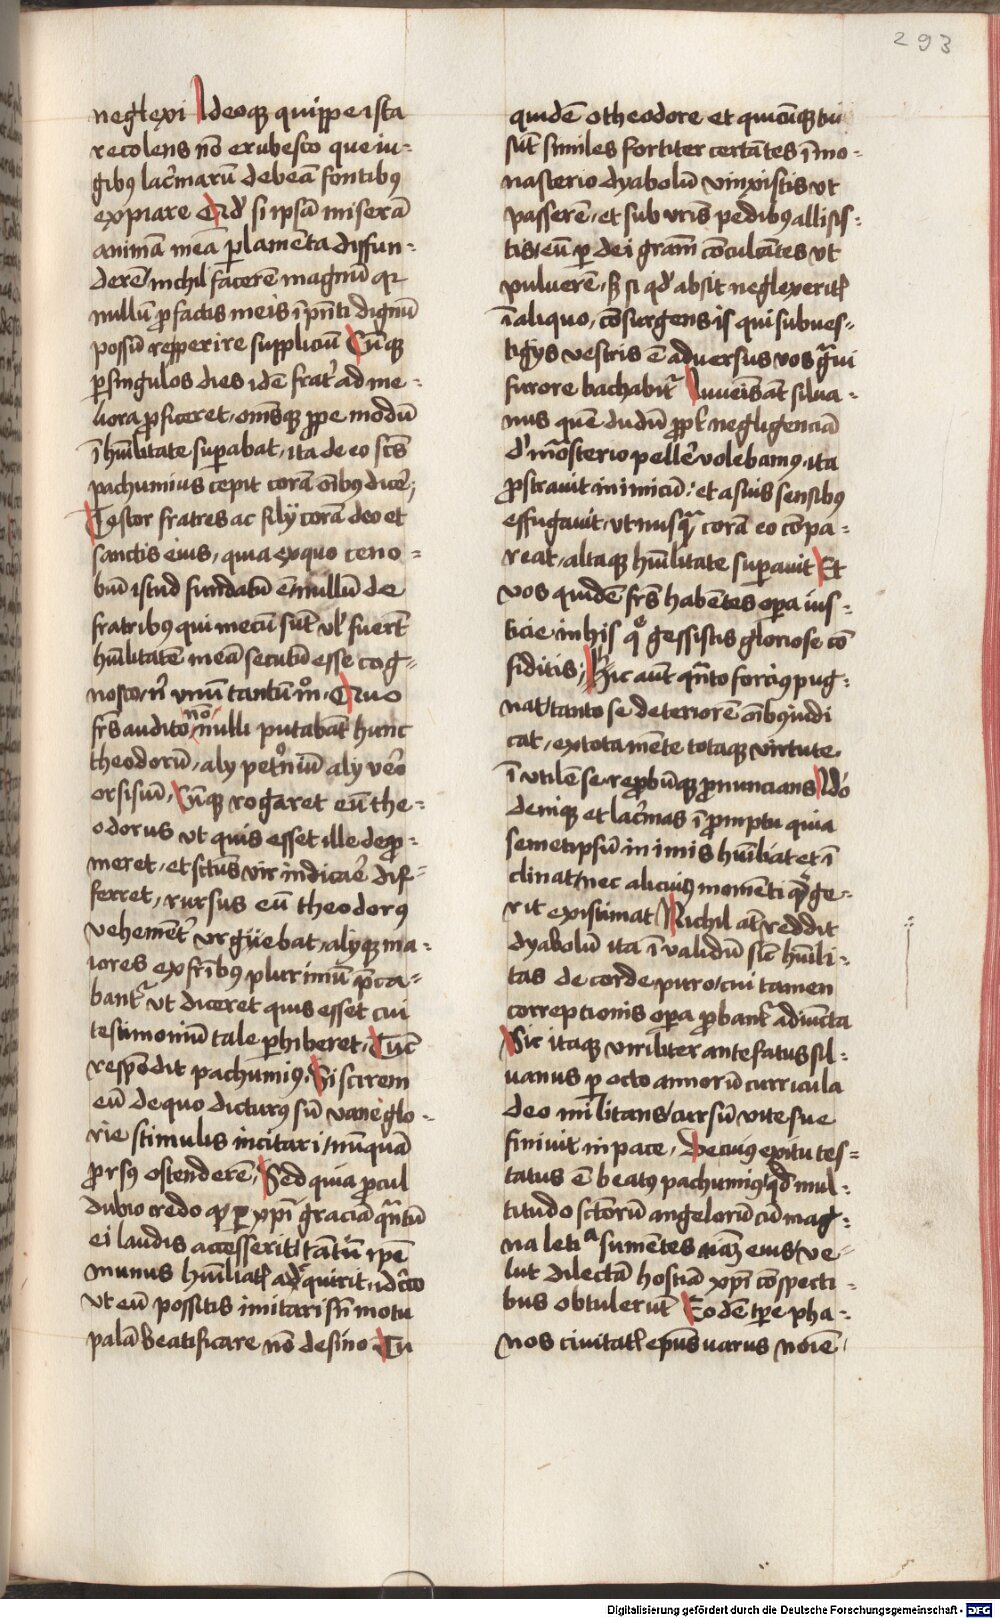 293
neglexi Ideoqꝫ quippe ista
recolens nō erubesco que iu-
gibꝰ lacͥmarū debeā fontibꝰ
expiare Qd' si ipsā miserā
animā meā ꝑ lamenta diffun-
derē nichil facerē magnū qꝛ
nullū ꝓ factis meis ī pn̄ti dignū
possū repperire suppliciū Cūqꝫ
ꝑ singulos dies idē frat' ad me-
liora ꝓficeret, om̄sqꝫ ꝓpe modū
ī hūilitate suꝑabat, ita de eo scs̄
pachumius cepit corā oībꝰ dic'e;
Testor fratres ac filij corā deo et
sanctis eius, quia ex quo ceno-
biū istud fundatū ē, nullū de
fratribꝰ qui mecū sūt ul' fuer̄t
hūilitatē meā secutū esse cog-
nosco, n' vnū tantūmo. Quo
frs̄ audito nō nulli putabāt hunc
theodorū, alij petͦniū alij v'o
orsisiū, Cūqꝫ rogaret eū the-
odorus vt quis esset ille depꝓ-
meret, et sctūs vir indica'e dif-
ferret, rursus eū theodorꝰ
vehemēt' vrguebat, alijqꝫ ma-
iores ex frībꝰ plurimū p̄ca-
bant᷑ vt diceret quis esset cui
testimoniū tale ꝑhiberet, Tūc
respōdit pachumiꝰ, Si scirem
eū de quo dicturꝰ sū vane glo-
rie stimulis incitari, nūquā
ꝓrsꝰ ostenderē, Sed quia ꝓcul
dubio credo qꝫ ꝑ xp̄i graciā qn̄tū
ei laudis accesserit, tātū ip̄e
munus hūiliatꝭ adquirit, idcͦco
vt eū possitis imitari sn̄ motu
palā beatificare nō desino Tu
quidē o theodore et quicūqꝫ tui
sūt similes fortiter certātes ī mo-
nasterio dyabolū vinxistis vt
passerē, et sub vrīs pedibꝰ allisis-
tis, eū ꝑ dei gram̄ cōculcātes vt
puluerē, sꝫ si qd' absit neglexeritꝭ
ī aliquo, cōsurgens is qui sub ues-
tigijs vestris ē aduersus vos gͣui
furore bachabit᷑ Iuuēis aūt silua-
nus quē dudū ꝓpt' negligenciā
d' mōsterio pell'e volebamꝰ, ita
ꝓstrauit inimicū, et a suis sensibꝰ
effugauit, vt nusqͣ corā eo cōpa-
reat, altaqꝫ hūilitate suꝑauit Et
vos quidē frs̄ habētes oꝑa ius-
ticie in his qͦ gessistis gloriose cō
fiditis; Hic aūt qn̄to forciꝰ pug-
nat, tanto se deteriorē oībꝰ iudi
cat, ex tota mēte totaqꝫ virtute
ī vtilē se reprobūqꝫ ꝓnuncians Idō
deniqꝫ et lacͥmas ī ꝓmptu quia
semetipsū in imis hūiliat et ī
clinat, nec alicuiꝰ momēti qͣ ge-
rit existimat Nichil at' reddit
dyabolū ita ī validū sic̄ hūili-
tas de corde puro, cui tamen
correptionis oꝑa ꝓbant᷑ adiūcta
Sic itaqꝫ viriliter antefatus sil-
uanus ꝑ octo annorū curricula
deo militans, cursū vite sue
finiuit in pace, De cuiꝰ exitu tes-
tatus ē beatꝰ pachumiꝰ, qd' mul-
titudo sctōrū angelorū cū mag-
na letiᵃ sumētes aīaꝫ eius, ve-
lut dilectā hostiā xp̄i cōspecti-
bus obtulerūt Eodē tꝑe pha-
nos ciuitatꝭ ep̄us varus noīe,
Digitalisierung gefördert durch die Deutsche Forschungsgemeinschaft - DFG